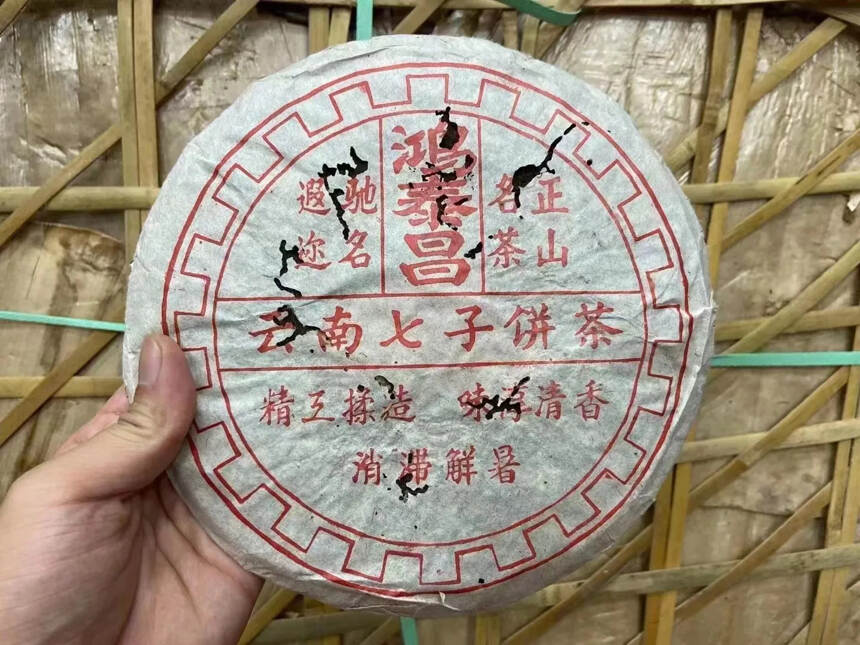 正山
名茶
鸿泰昌
驰名
遐迩
云南七子饼茶
精工揉造 味淳清香
消滞解暑